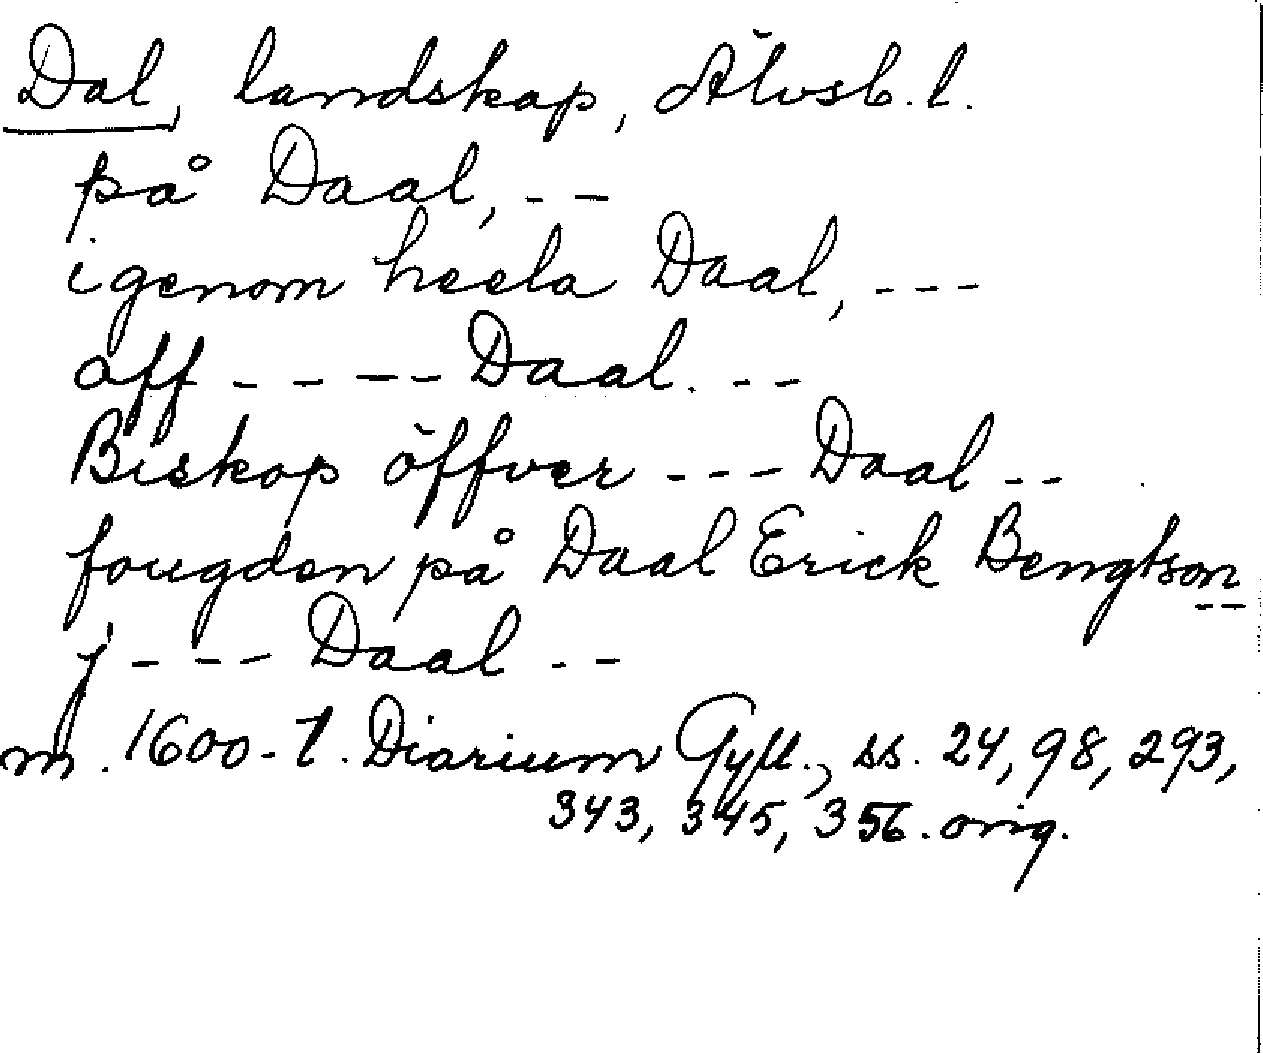 Dal, landskap, Älvsb. l.
på Daal, - -
igenom heela Daal, - - -
aff - - - - Daal. - -
Biskop öffver - - - Daal - -
fougden på Daal Erick Bengtson
- -
j - - - Daal - -
m. 1600-t. Diarium Gyll., ss. 24, 98, 293,
343, 345, 356. orig.